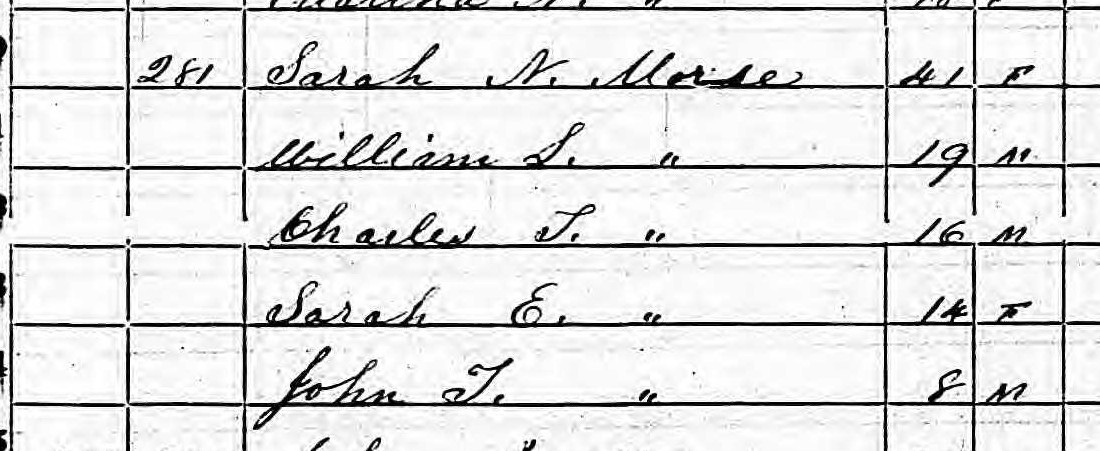 281 Sarah N. Morse 41 F
William S. " 19 M
Charles T. " 16 M
Sarah E. " 14 F
John T. " 8 M